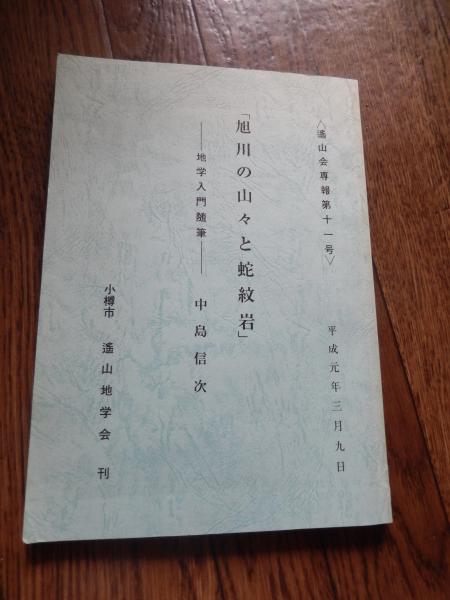 〈遙山会専報第十一号〉 平成元年三月九日
「旭川の山々と蛇紋岩」
――地学入門随筆―― 中島信次
小樽市 遙山地学会 刊